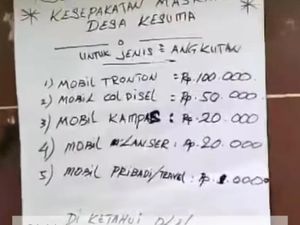 * KESEPAKATAN
DESA KESUMA
UNTUK JENIS² ANGKUTAN
1) MOBIL TRONTON : Rp. 100.000.
2) MOBIL COLDISEL : Rp. 50.000
3) MOBIL KAMPAS : Rp. 20.000
4) MOBIL LANSER : Rp. 20.000
5) MOBIL PRIBADI/TRAVEL : Rp.
DI KETAHUI OLEH